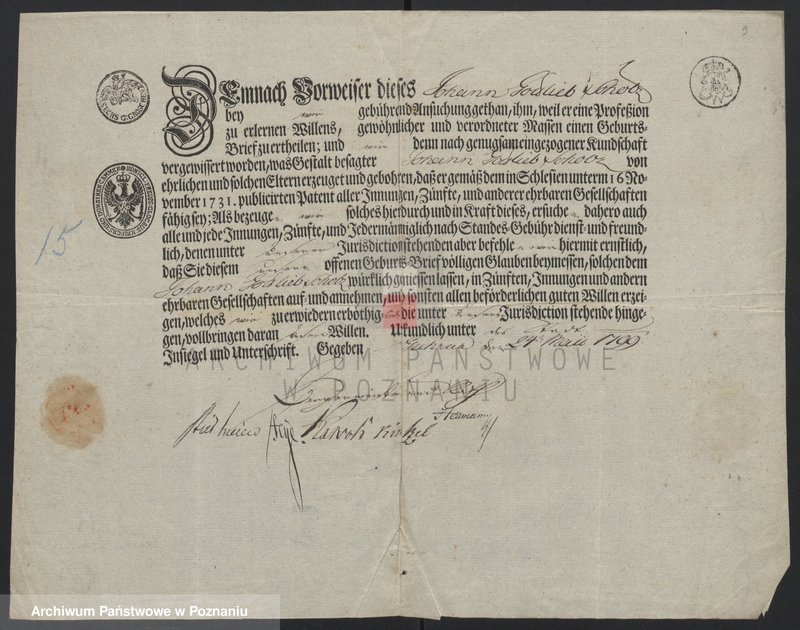 9
DEmnach Vorweiser dieses Johann Gottlieb Scholz
bey wir gebührend Ansuchung gethan, ihm, weil er eine Profeßion
zu erlernen Willens, gewöhnlicher und verordneter Massen einen Geburts-
Brief zu ertheilen; und wir denn nach genugsam eingezogener Kundschaft
vergewissert worden, was Gestalt besagter Johann Gottlieb Scholz von
ehrlichen und solchen Eltern erzeuget und gebohren, daß er gemäß dem in Schlesien unterm 16 No-
vember 1731. publicirten Patent aller Innungen, Zünfte, und anderer ehrbaren Gesellschaften
fähig sey: Als bezeuge n wir solches hierdurch und in Kraft dieses, ersuche n dahero auch
alle und jede Innungen, Zünfte, und Jedermänniglich nach Standes-Gebühr dienst- und freund-
lich, denen unter unserer Jurisdiction stehenden aber befehle n wir hiermit ernstlich,
daß Sie diesem unsern offenen Geburts-Brief völligen Glauben beymessen, solchen dem
Johann Gottlieb Scholz würklich geniessen lassen, in Zünften, Innungen und andern
ehrbaren Gesellschaften auf- und annehmen, und sonsten allen beförderlichen guten Willen erzei-
gen, welches wir zu erwiedern erböthig sind die unter unserer Jurisdiction stehende hinge-
gen, vollbringen daran unsern Willen. Uhrkundlich unter der Stadt
Insiegel und Unterschrift. Gegeben Guhrau den 24t Maii 1799
15
ARCHIWUM PAŃSTWOWE
W POZNANIU
Archiwum Państwowe w Poznaniu